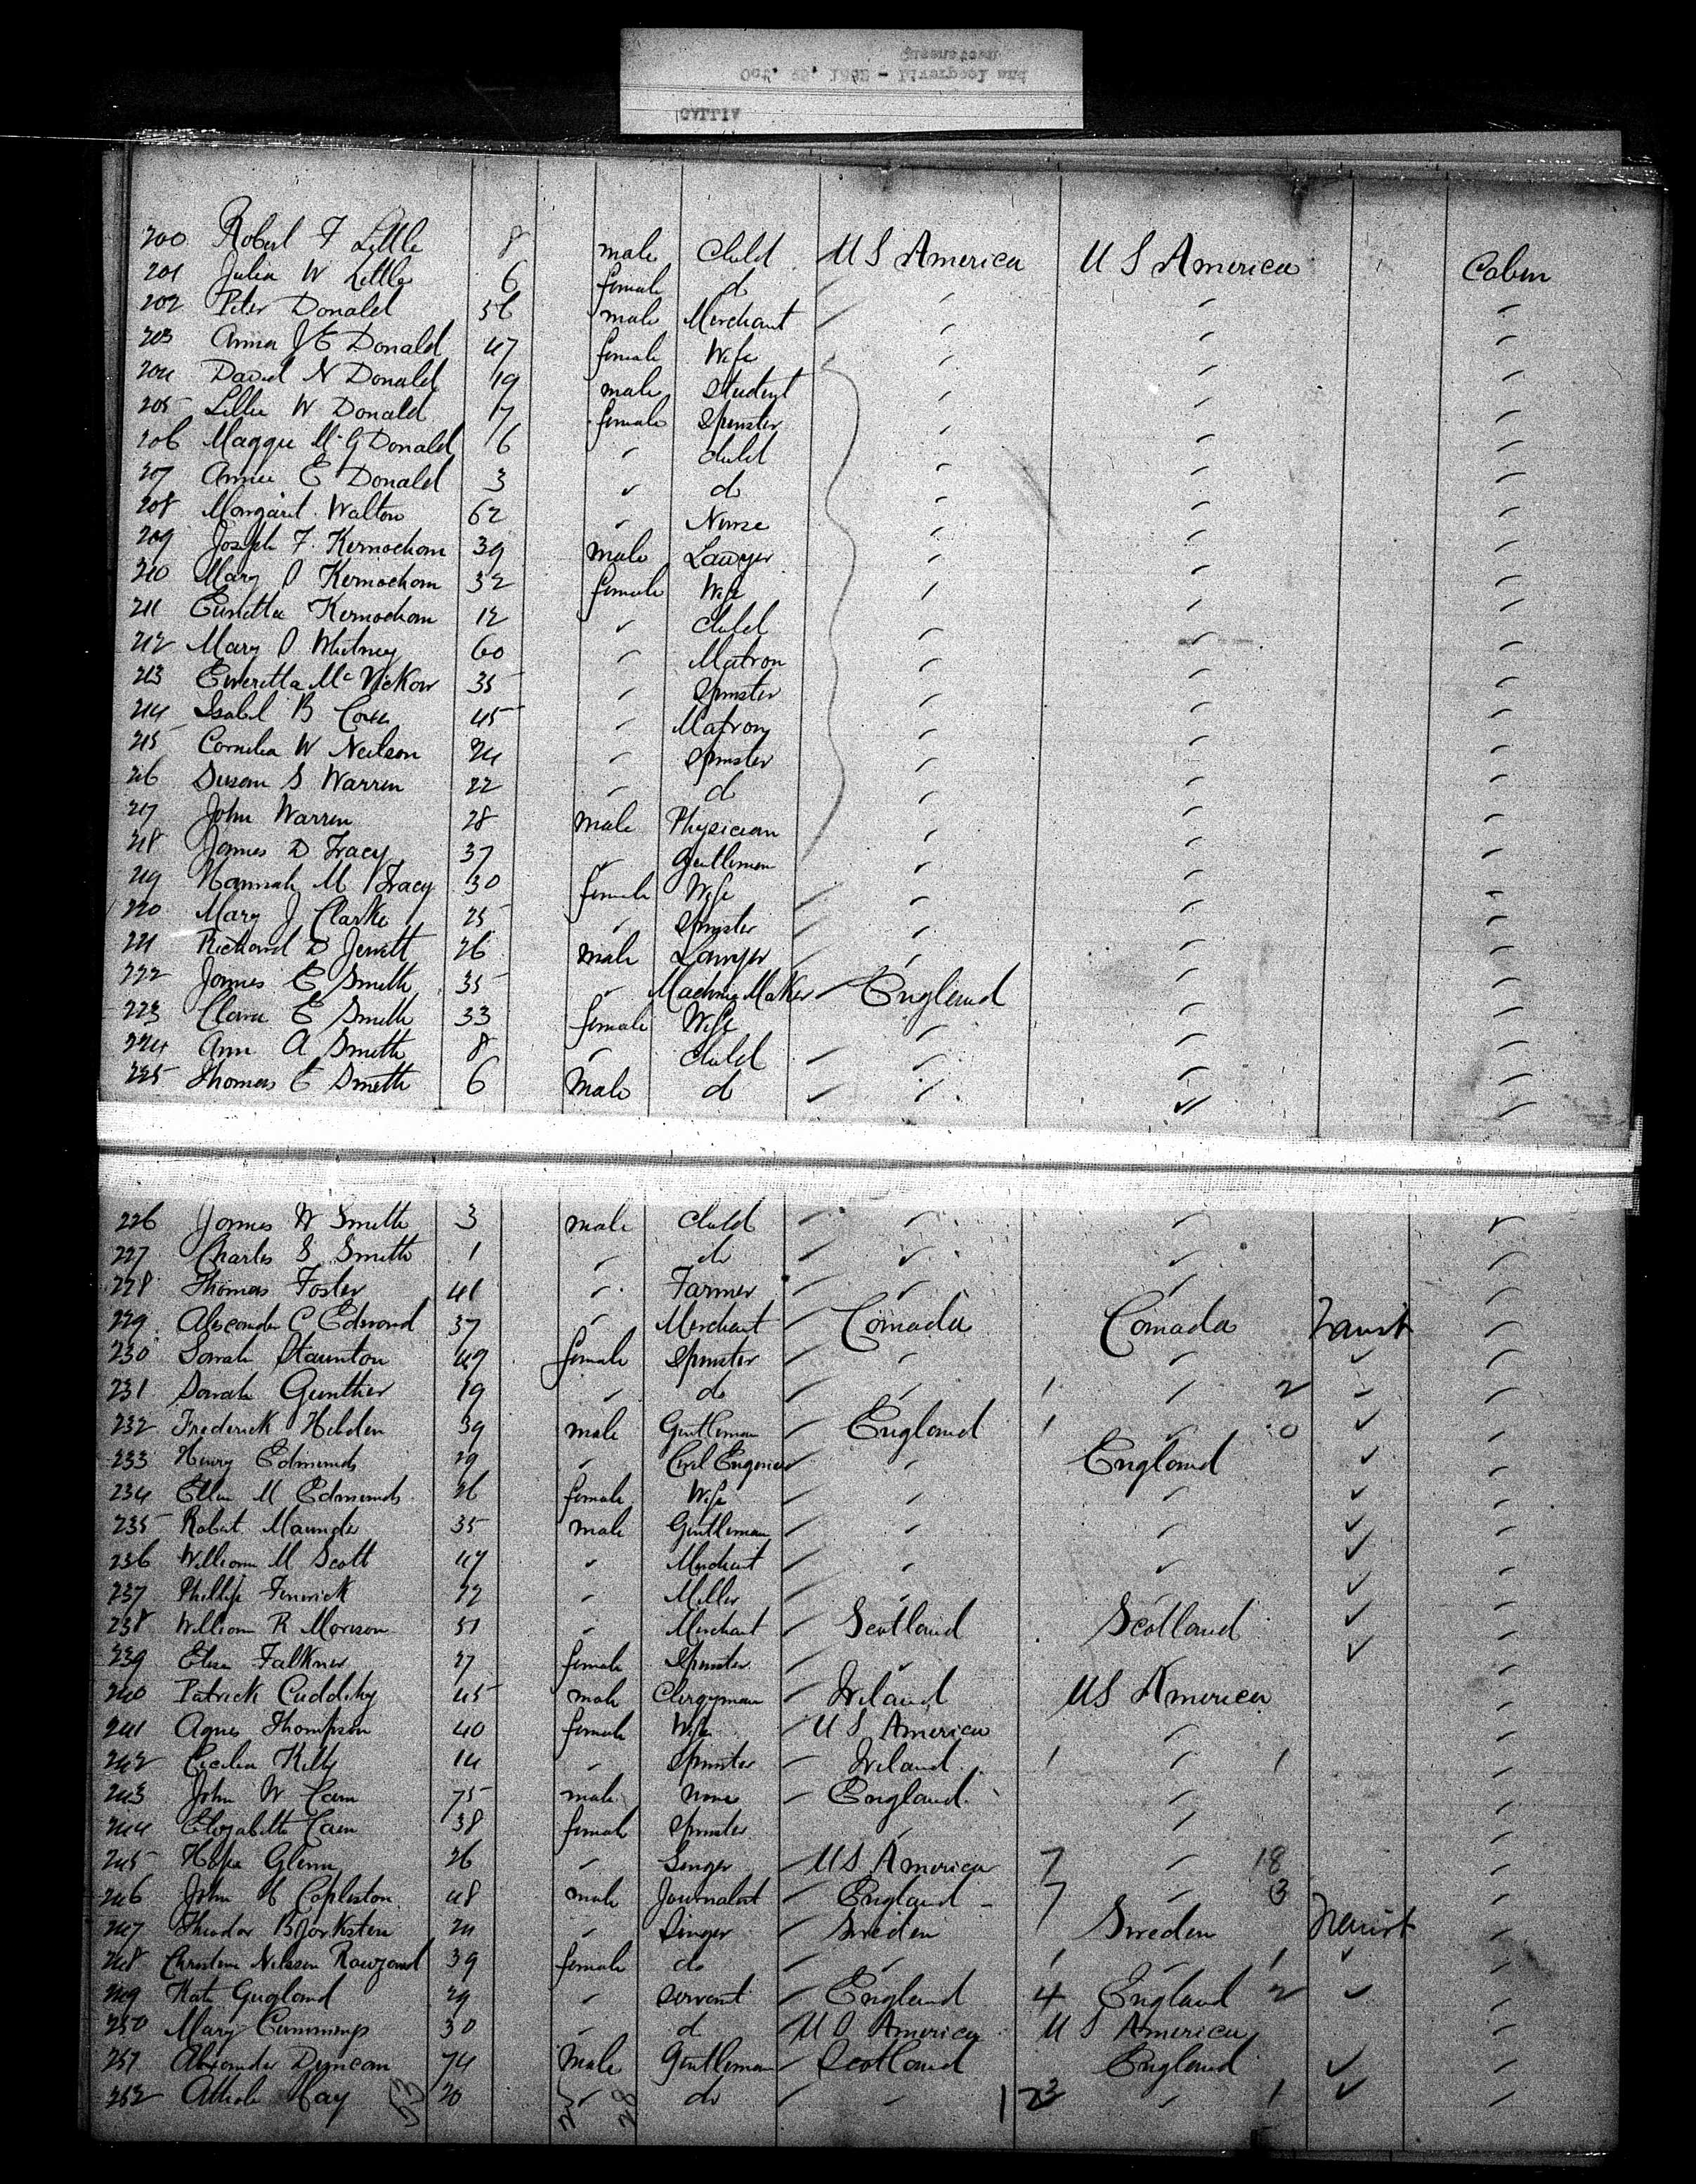 Queenstown
Oct. 25, 1882 - Liverpool and
GALLIA
200 Robert F Little 8 male Child U S America U S America Cabin
201 Julia W Little 6 female do
202 Peter Donald 56 male Merchant
203 Anna J E Donald 47 female Wife
204 David N Donald 19 male Student
205 Lillie W Donald 17 female Spinster
206 Maggie McG Donald 16 " Child
207 Annie E Donald 3 " do
208 Margaret Walton 62 " Nurse
209 Joseph F. Kernochan 39 male Lawyer
210 Mary S Kernochan 32 female Wife
211 Eweretta Kernochan 12 " Child
212 Mary S Whitney 60 " Matron
213 Eweretta McVickar 35 " Spinster
214 Isabel B 45 " Matron
215 Cornelia W Neilson 24 " Spinster
216 Susan S Warren 22 " do
217 John Warren 28 male Physician
218 James D Tracy 37 " Gentleman
219 Hannah M Tracy 30 female Wife
220 Mary J Clarke 25 " Spinster
221 Richard D Jewett 26 male Lawyer
222 James E Smith 35 " Machine Maker England
223 Clara E Smith 33 female Wife
224 Ann A Smith 8 " Child
225 Thomas E Smith 6 Male do
226 James W Smith 3 male Child
227 Charles S Smith 1 " do
228 Thomas Foster 41 " Farmer
229 Alexander C Edmond 37 " Merchant Canada Canada Transit
230 Sarah Staunton 49 female Spinster
231 Sarah Gunther 19 " do 1 2
232 Frederick Hebden 39 male Gentleman England 1 0
233 Henry Edmunds 29 " Civil Engineer England
234 Ellen M Edmunds 26 female Wife
235 Robert Maunder 35 male Gentleman
236 William M Scott 47 " Merchant
237 Phillip Fenwick 22 " Miller
238 William R Morison 51 " Merchant Scotland Scotland
239 Eliza Falkner 27 female Spinster
240 Patrick Cuddihy 45 male Clergyman Ireland US America
241 Agnes Thompson 40 female Wife U S America
242 Cecilia Kelly 14 " Spinster Ireland 1 1
243 John W Cain 75 male None England
244 Elizabeth Cain 38 female Spinster
245 Hope Glenn 26 " Singer US America 7 18
246 John H Copleston 48 male Journalist England 7 3
247 Theodor Bjorksten 24 " Singer Sweden Sweden Transit
248 Christine Nilsson Rouzaud 39 female do 1 1
249 Kate 29 " Servant England 4 England 2
250 Mary Cummings 30 " do U S America U S America
251 Alexander Duncan 74 Male Gentleman Scotland England
252 Athole Hay 53 20 " 28 do 1 23 1